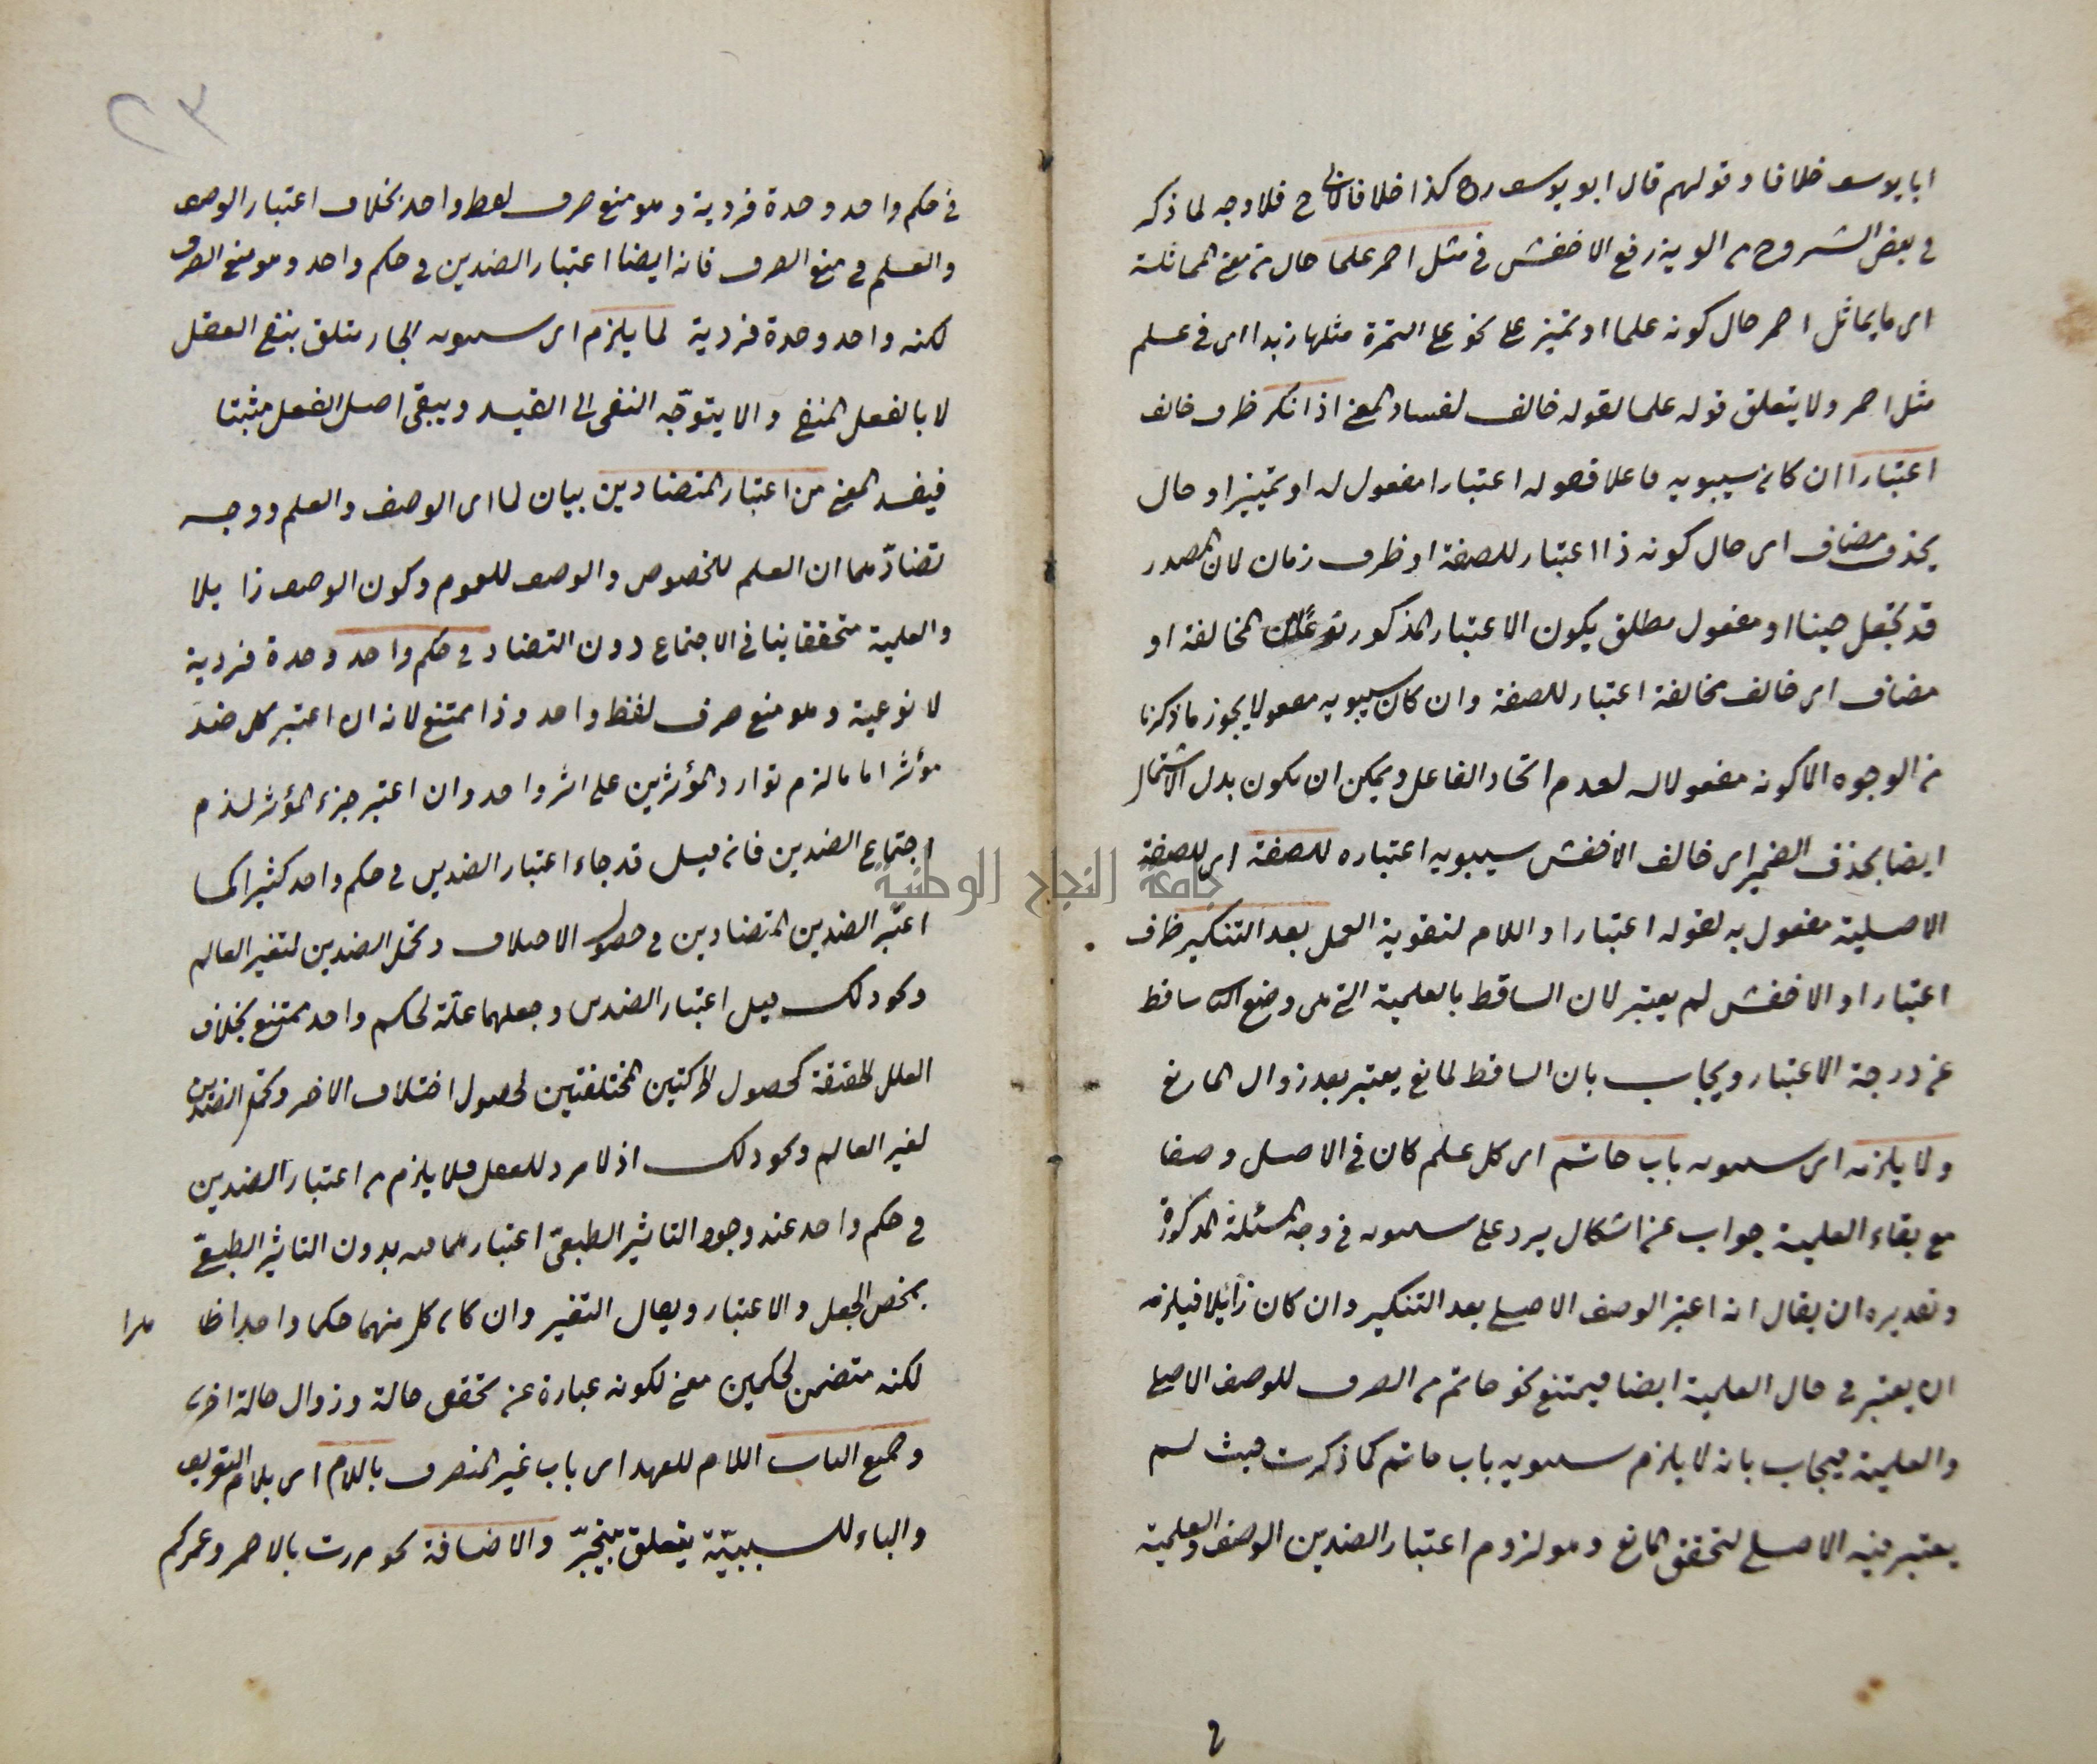 ابا يوسف خلافا وقولهم قال ابو يوسف رح كذا خلافا لابى ح فلا وجه لما ذكر
فى بعض الشروح من الوية رفع الاخفش فى مثل احمر علما حال من معنى المماثلة
اى ما يماثل احمر حال كونه علما او تميز على نحو على التمرة مثلها زبدا اى فى علم
مثل احمر ولا يتعلق قوله علما لقوله خالف لفساد المعنى اذا نكر ظرف خالف
اعتبارا ان كان سيبويه فاعلا فقوله اعتبارا مفعول له او تميزا او حال
بحذف مضاف اى حال كونه ذا اعتبار للصفة او ظرف زمان لان المصدر
قد يجعل حينا او مفعول مطلق يكون الاعتبار المذكور المخالفة او
مضاف اى خالف مخالفة اعتبار للصفة وان كان سيبويه مفعولا يجوز ما ذكرنا
من الوجوه الا كونه مفعولا له لعدم اتحاد الفاعل ويمكن ان يكون بدل الاشتمال
ايضا بحذف الضمير اى خالف الاخفش سيبويه اعتباره للصفة اى للصفة
الاصلية مفعول به لقوله اعتبارا واللام لتقوية العمل بعد التنكير ظرف
اعتبارا والاخفش لم يعتبر لان الساقط بالعلمية التى هى وضع ساقط
عن درجة الاعتبار ويجاب بان الساقط لمانع يعتبر بعد زوال المانع
ولا يلزمه اى سيبويه باب حاتم اى كل علم كان فى الاصل وصفا
مع بقاء العلمية جواب عن اشكال يرد على سيبويه فى وجه المسئلة المذكورة
وتقديره ان يقال انه اعتبر الوصف الاصلى بعد التنكير وان كان زائلا فيلزمه
ان يعتبر فى حال العلمية ايضا فيمتنع نحو حاتم من الصرف للوصف الاصلى
والعلمية فيجاب بانه لا يلزم سيبويه باب حاتم كما ذكرت حيث لم
يعتبر فيه الاصلى لتحقق المانع وهو لزوم اعتبار الضدين الوصف والعلمية
٢٣
فى حكم واحد وحدة فردية وهو منع صرف لفظ واحد بخلاف اعتبار الوصف
والعلم فى منع الصرف فانه ايضا اعتبار الضدين فى حكم واحد وهو منع الصرف
لكنه واحد وحدة فردية لما يلزم اى سيبويه الجار متلق بنفى الفعل
لا بالفعل المنفى والا يتوجّه النفى الى القيد ويبقى اصل الفعل مثبتا
فيفسد المعنى من اعتبار المتضادين بيان لما اى الوصف والعلم ووجه
تضادّهما ان العلم للخصوص والوصف للعموم وكون الوصف زايلا
والعلمية متحققا ينافى الاجتماع دون التضاد فى حكم واحد وحدة فردية
لا نوعية وهو منع صرف لفظ واحد وذا ممتنع لانه ان اعتبر كل ضد
مؤثرا اما ما لزم توارد المؤثرين على اثر واحد وان اعتبر جزء المؤثر لزم
اجتماع الضدين فان قيل قد جاء اعتبار الضدين فى حكم واحد كثيرا كما
اعتبر الضدين المتضادين فى حصول الاختلاف وتخلل الضدين لتغير العالم
ونحو ذلك قيل اعتبار الضدين وجعلهما علّة لحكم واحد ممتنع بخلاف
العلل الحقيقة كحصول الحركتين المختلفتين لحصول اختلاف الاخر وتخلل الضدين
لغير العالم ونحو ذلك اذ لا مرد للعقل فلا يلزم من اعتبار الضدين
فى حكم واحد عند وجود التاثير الطبعىّ اعتبارهما فيه بدون التاثير الطبعىّ
بمحض الجعل والاعتبار ويقال التغير وان كان كل منهما حكما واحدا ظا هرا
لكنه متضمن لحكمين معنى لكونه عبارة عن تحقق حالة وزوال حالة اخرى
وجميع الباب اللام للعهد اى باب غير المنصرف باللام اى بلام التعريف
والباء للسببيّة يتعلق بينجرّ والاضافة نحو مررت بالاحمر وعمركم
جامعة النجاح الوطنية